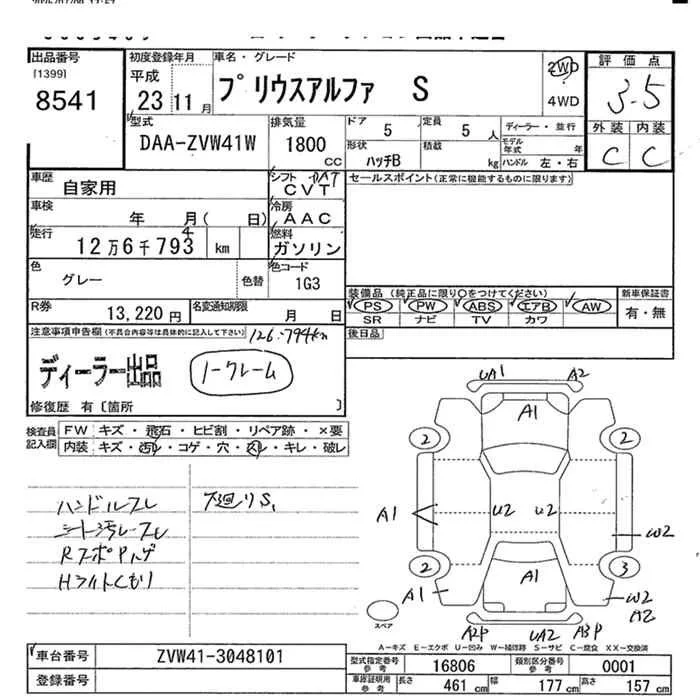 出品番号
[1399]
8541
初度登録年月
平成
23 11月
車名・グレード
プリウスアルファ S
2WD
4WD
評価点
3.5
外装 内装
C C
型式
DAA-ZVW41W
排気量
1800
CC
ドア 5
定員 5 人
ディーラー・並行
モデル年式 年
形状
ハッチB
積載
kg
ハンドル 左・右
車歴
自家用
シフト DAT
CVT
セールスポイント(正常に機能するものに限ります)
車検
年 月( 日)
冷房
AAC
走行
12万6千793 km
4
燃料
ガソリン
色
グレー
色替
色コード
1G3
装備品(純正品に限り〇をつけてください)
新車保証書
PS PW ABS エアB AW
有・無
SR ナビ TV カワ
R券
13,220円
名変通知期限
月 日
後日品
注意事項申告欄(不具合内容等は具体的に記入して下さい)
126.794km
ディーラー出品
ノークレーム
修復歴 有〔箇所 〕
検査員記入欄
FW キズ・飛石・ヒビ割・リペア跡・×要
内装 キズ・汚れ・コゲ・穴・スレ・キレ・破レ
ハンドルスレ
下廻りS,
シート汚レースレ
RスポPハゲ
Hライトくもり
UA1 A2
A1
2 2
A1 U2 U2 W2
2 3
A1
A1 W2
A2
スペア
A2P UA2 A3P
A-キズ E-エクボ U-凹み W-補修跡 S-サビ C-腐食 XX-交換済
車台番号
ZVW41-3048101
登録番号
型式指定番号
参考
16806
類別区分番号
参考
0001
車庫証明用
参考
長さ 461 cm
幅 177 cm
高さ 157 cm